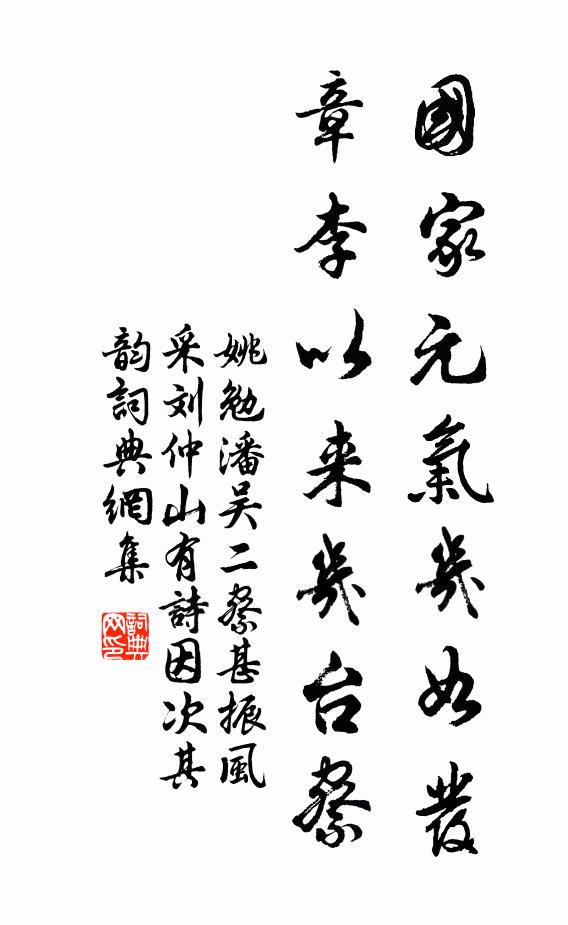 國家元氣幾如發
章李以来幾台察
姚勉潘吴二察甚振風
采刘仲山有詩因次其
韵詞典網集
詞典
网印